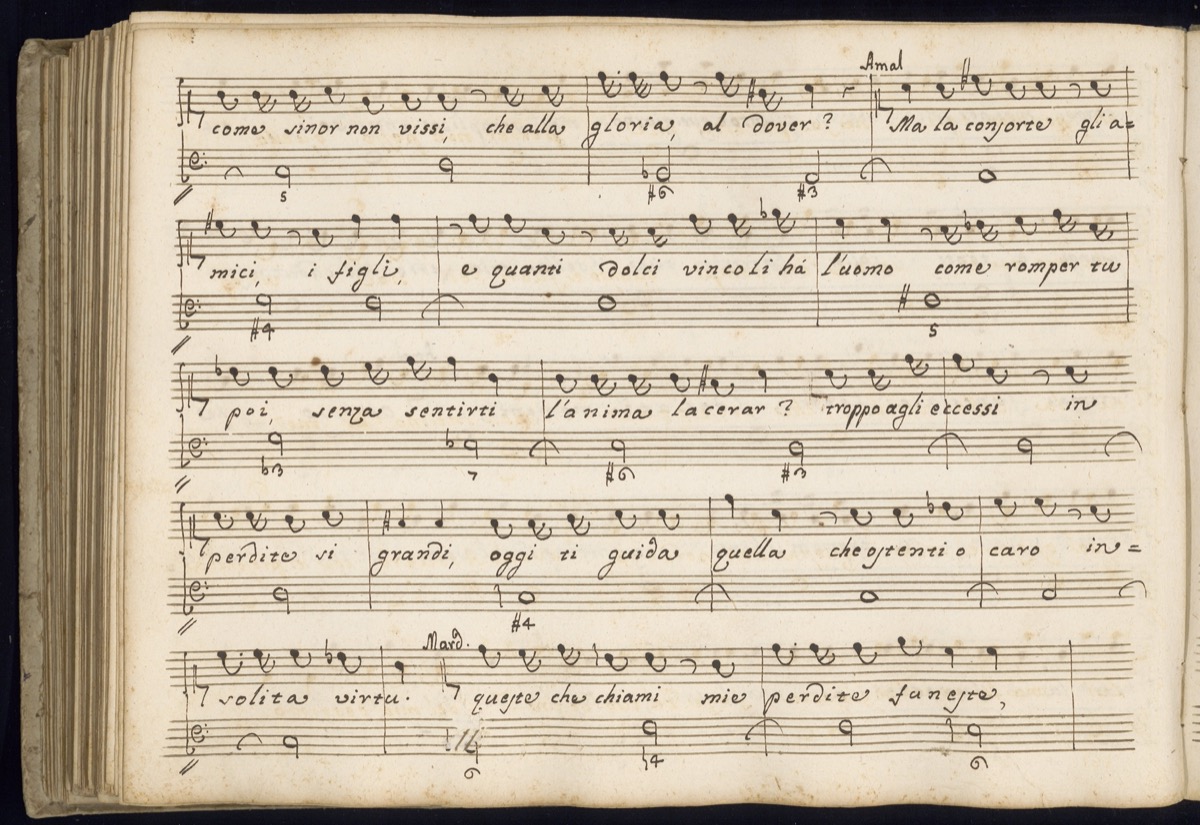 Amal
come sinor non vissi, che alla gloria, al dover? Ma la consorte gli a=
5 #6 #3
mici, i figli, e quanti dolci vincoli há l'uomo come romper tu
#4 5
poi, senza sentirti l'anima lacerar? troppo agli eccessi in
b3 7 #6 #3
perdite si grandi, oggi ti guida quella che ostenti o caro in=
#4
Mard.
solita virtu. queste che chiami mie perdite funeste,
6 ♮4 6